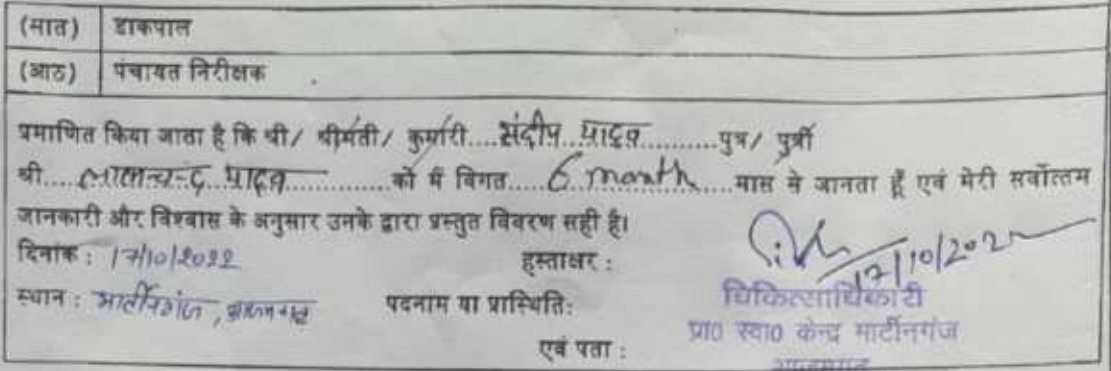 (सात) डाकपाल
(आठ) पंचायत निरीक्षक
प्रमाणित किया जाता है कि श्री/ श्रीमती/ कुमारी....संदीप यादव.........पुत्र/ पुत्री
श्री.....लालचन्द यादव.............को मैं विगत.....6 month.....मास से जानता हूँ एवं मेरी सर्वोत्तम
जानकारी और विश्वास के अनुसार उनके द्वारा प्रस्तुत विवरण सही है।
दिनांक : 17/10/2022 हस्ताक्षर : 17/10/202
स्थान : मार्टीनगंज, आजमगढ़ पदनाम या प्रास्थिति: चिकित्साधिकारी
प्रा0 स्वा0 केन्द्र मार्टीनगंज
एवं पता : आजमगढ़